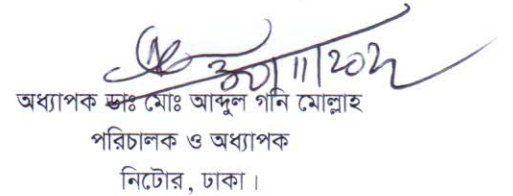 অধ্যাপক ডাঃ মোঃ আব্দুল গনি মোল্লাহ
পরিচালক ও অধ্যাপক
নিটোর, ঢাকা।